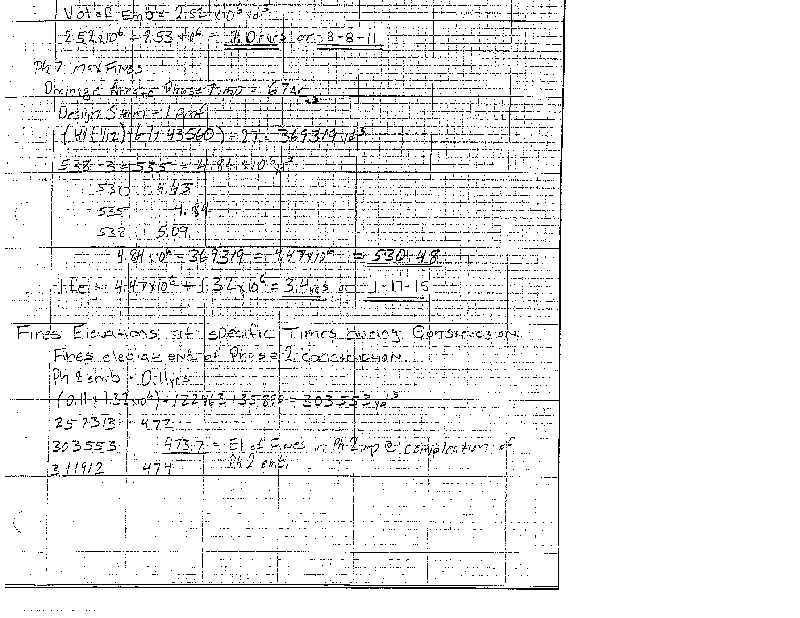 Vol of Emb = 2.52 x10⁶ yd³
2.52x10⁶ ÷ 2.53 x10⁶ = 1.0 yrs or 8-8-11
Ph 7 Max Fines
Drainage Area Phase Imp = 67 Ac
Design Storm =
67 x 43560) ÷ 27 = 369319 yd³
538 - 3 = 535 = 4.84 x10⁶ yd³
535 4.84
538 5.09
4.84 x10⁶ - 369319 = 4.47x10⁶ = 530+.48
4.47x10⁶ ÷ 1.32x10⁶ = 3.4 yrs or 1-17-15
Fines Elevations at specific Times during Construction
Fines elev at end of Phase 2 construction
Ph 2 emb = 0.11 yrs
(0.11 x 1.32x10⁶) + 122463 + 35890 = 303553 yd³
257313 472
303553 473.7 = El of Fines in Ph 2 imp @ completion of
311912 474 Ph 2 emb.